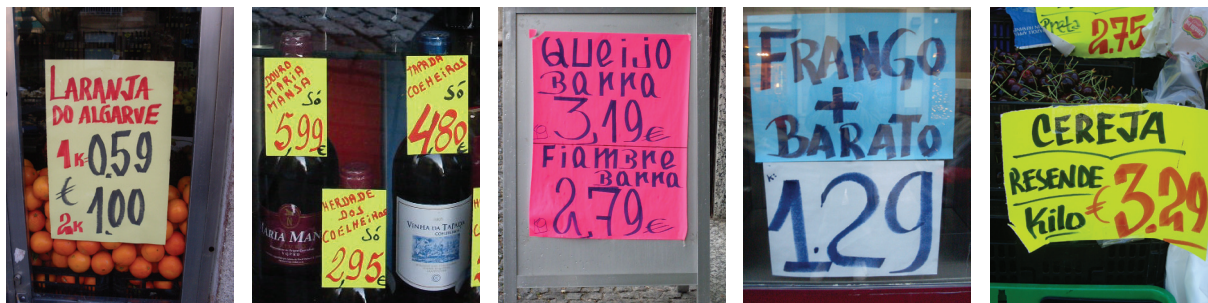 LARANJA
DO ALGARVE
1K 0.59
€
2K 1.00
DOURO
MARIA
MANSA
Só
5,99
€
TAPADA
COELHEIROS
Só
480
€
HERDADE
DOS
COELHEIROS
Só
2,95
€
ARIA MAN
VINHA DA TAPADA
QUEIJO
BARRA
3,19€
FIAMBRE
BARRA
2,79€
FRANGO
+
BARATO
K:
1.29
Preta
2.75
CEREJA
RESENDE
Kilo € 3.29